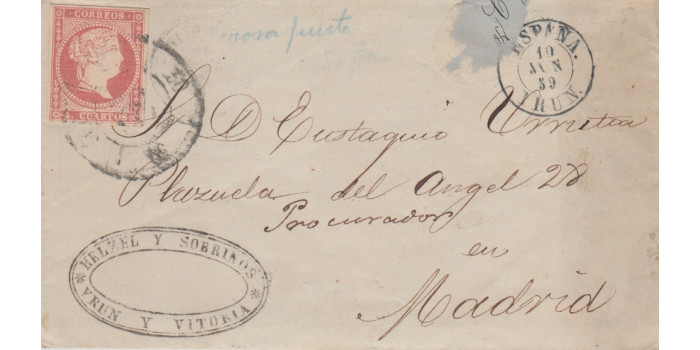 CORREOS
CUARTOS
rosa fuerte
ESPAÑA.
10
JUN
59
IRUN.
Sr D Eustaquio Urrutia
Plazuela del Angel 28
Procurador
en
Madrid
HELZEL Y SOBRINOS
YRUN Y VITORIA